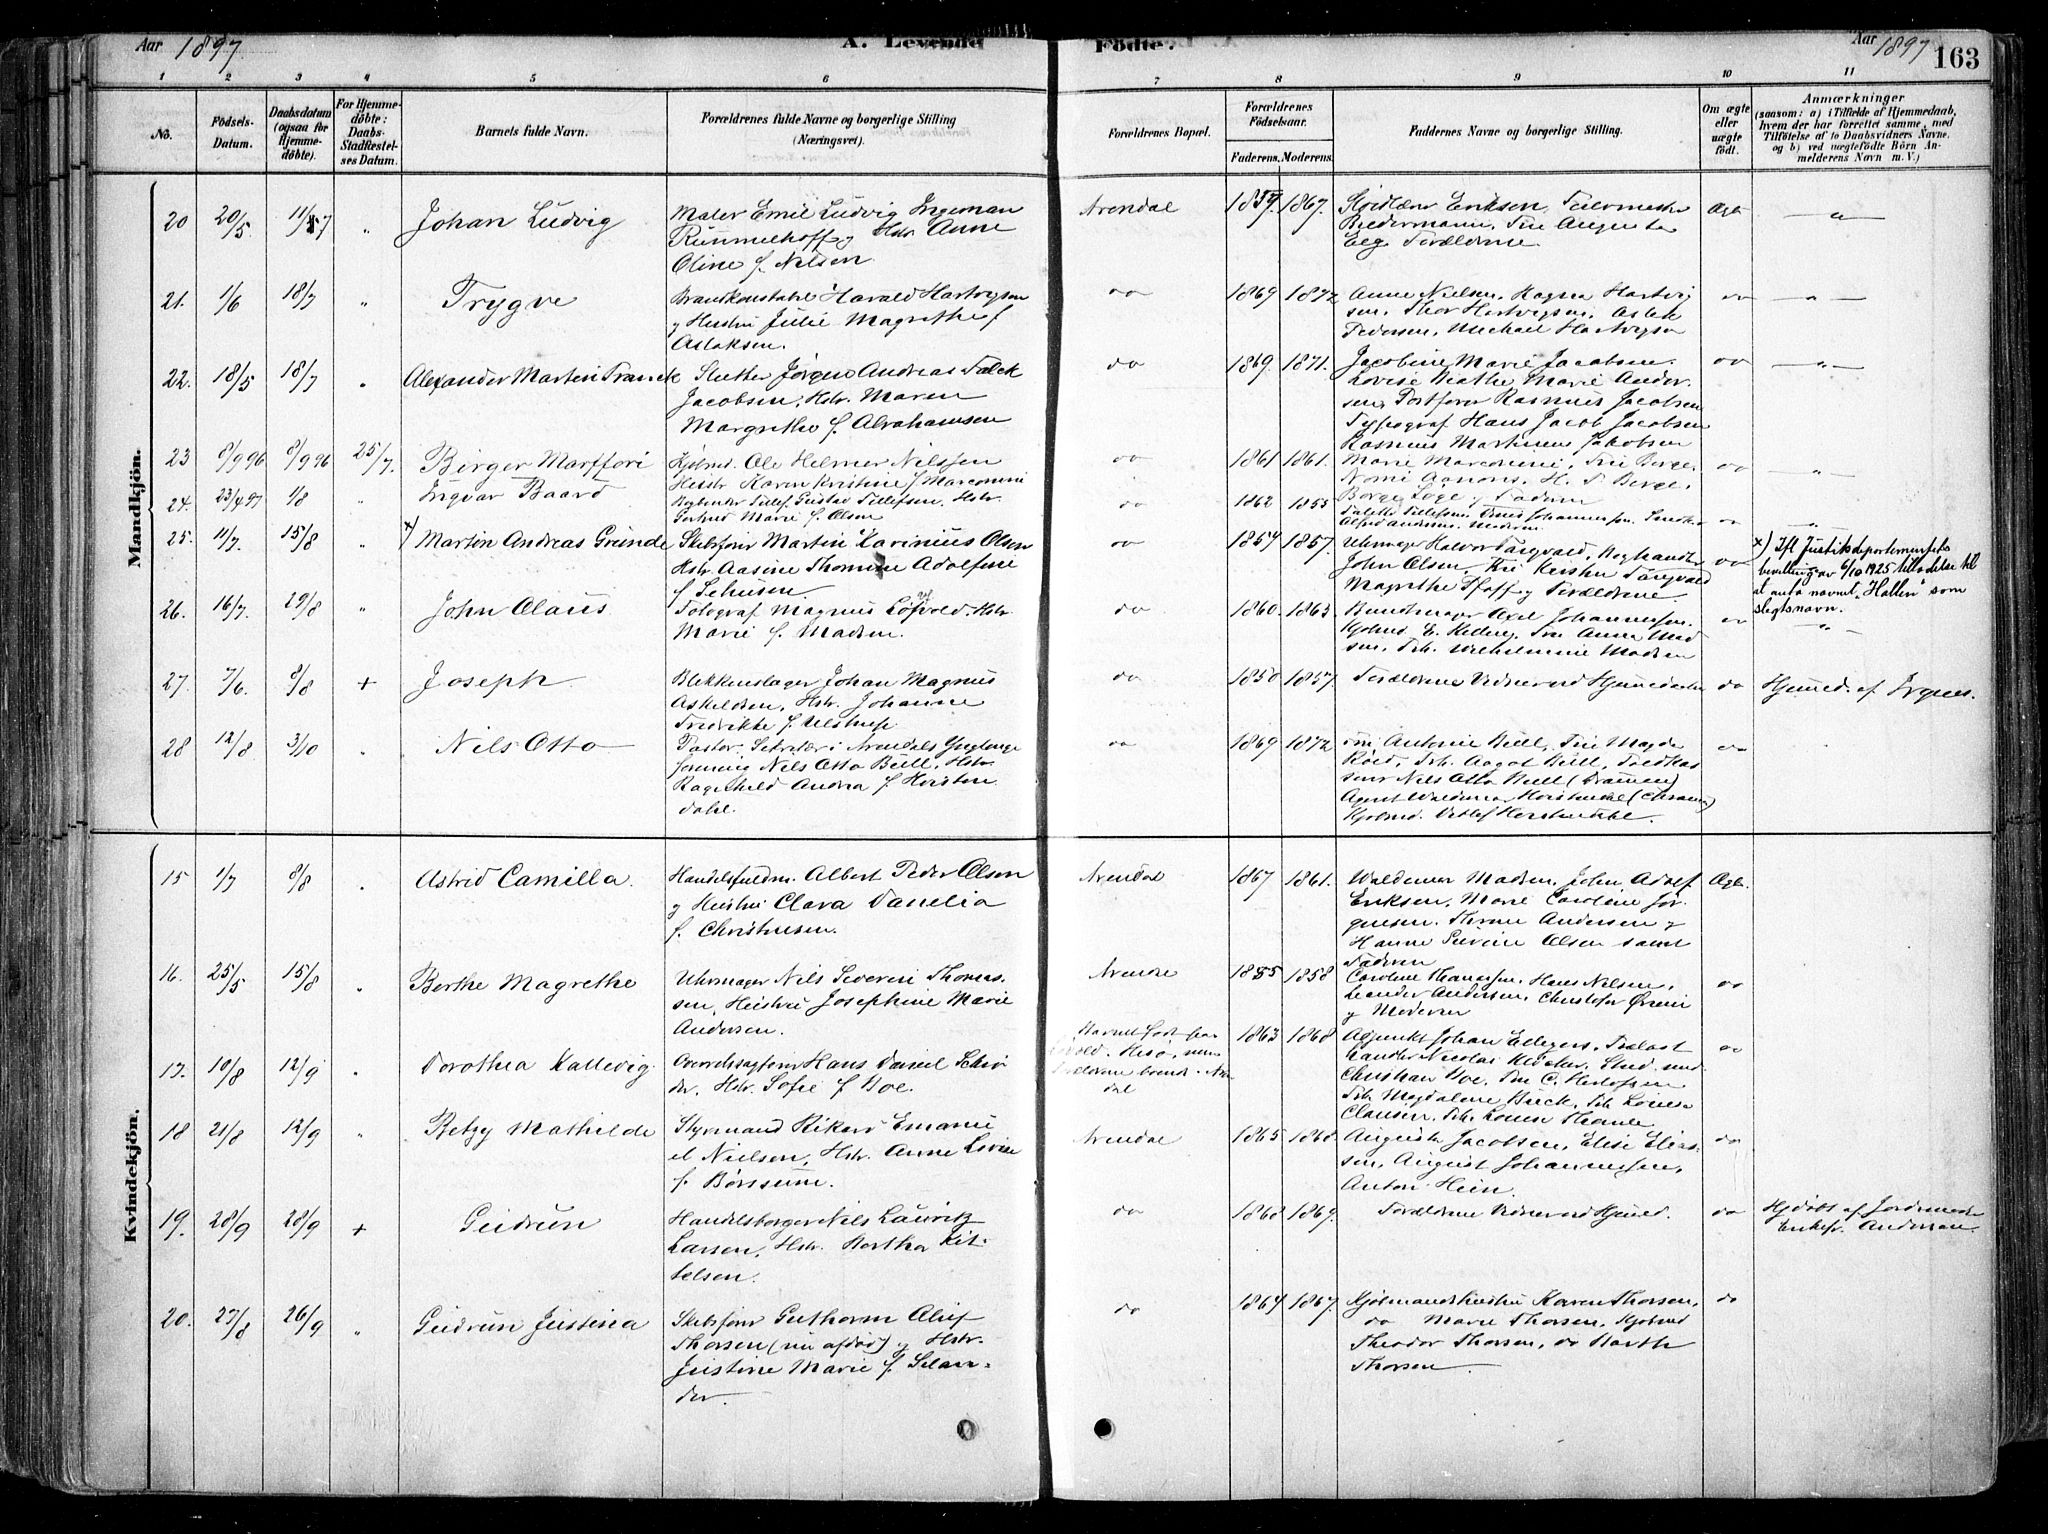 Aar 1897
A. Levende
Fødte.
Aar 1897
163
1 2 3 4 5 6 7 8 9 10 11
No.
Fødsels-
Datum.
Daabsdatum
(ogsaa for
Hjemme-
døbte).
For Hjemme-
døbte:
Daabs-
Stadfæstel-
ses Datum.
Barnets fulde Navn.
Forældrenes fulde Navne og borgerlige Stilling
(Næringsvei).
Forældrenes Bopæl.
Forældrenes
Fødselsaar.
Faderens. Moderens.
Faddernes Navne og borgerlige Stilling.
Om ægte
eller
uægte
født.
Anmærkninger
(saasom: a) i Tilfælde af Hjemmedaab,
hvem der har forrettet samme, med
Tilføielse af to Daabsvidners Navne,
og b) ved uægtefødte Børn An-
melderens Navn m. V.)
Mandkjön.
20 20/5 11/7 " Johan Ludvig
Maler Emil Ludvig Ingeman
Rummelhoff og Hstr. Anne
Oline f. Nilsen
Arendal 1859. 1867.
Eriksen,
Biedermann, Frk Augusta
Forældrene
Ægte
21. 1/6 18/7 " Trygve
Brandkonstabel Harald Hartvigsen
og Hustru Julie Magrethe f
Aslaksen.
do 1869 1872
Anne Nielsen, Ragna Hartvig
sen, Thor Hartvigsen, Aslak
Pedersen, Michael Hartvigsen
do
22. 18/5 18/7 " Alexander Martin Franck
Jørgen Andreas Falck
Jacobsen, Hstr. Maren
Margrethe f. Abrahamsen
do 1869. 1871.
Jacobine Marie Jacobsen.
Lovise Beathe Marie Ander-
sen, Rasmus Jacobsen
Typograf Hans Jacob Jacobsen
Rasmus Martinus Jakobsen
do
23 8/9 96 8/9 96 25/7. Birger
Kjøbmd. Ole Helmer Nilssen
Hustr Karen Kristine f Marconini
do 1861 1861.
Berge,
H. T. Berge,
Faderen
do
24. 23/4 97 1/8 Ingvar Baard
Gustav Tellefsen, Hstr.
Gertrud Marie f. Olsen
do 1862 1855
Tellefsen, Johannessen,
Moderen
do
25. 11/7. 15/8 " x) Martin Andreas Grunde
Skibsfører Martin Karinius Olsen
Hstr. Aasine Thomine Adolfine
f Schusen
do 1854 1857.
Uhrmager Halvor Torgvald,
John Olsen, Kirsten Torgvald
Magrethe Pfaff og Forældrene.
do
x) Ifl Justisdepartementets
bevilling av 6/10 1925 tilladelse til
at anta navnet "Hallen" som
slegtsnavn.
26. 16/7. 29/8 " John Claus
Fotograf Magnus Løvold Hstr
Marie f. Madsen.
do 1860. 1863.
Bundtmager Axel Johannessen.
Anna Mad
sen, Frk. Wilhelmine Madsen
27. 7/6. 8/8 + Joseph
Blikkenslager Johan Magnus
Askildsen, Hstr. Johanne
Fredrikke f. Ulstrup
do 1850 1857.
Forældrene Vidner ved Hjemmedaaben
do
Hjemmed. af
28 12/8 3/10 " Nils Otto
Pastor, Sekretær i Arendals Ynglinge
forening Nils Otto Bull, Hstr
Ragnhild Andrea f Kristen
dahl.
do 1869 1872
Fru Antonie Bull, Fru Magda
Röed, Frk. Aagot Bull, Toldkas
serer Nils Otto Bull (Drammen)
Agent Waldemar (Chrania)
Kjøbmd.
do
Kvindekjön.
15 1/7 8/8 " Astrid Camilla.
Handelsfuldm. Albert Peder Olsen
og Hustru Clara Danelia
f. Christensen.
Arendal 1867 1861.
Waldemar Madsen, John Adolf
Eriksen, Marie Caroline Jør-
gensen, Andersen og
Hanne Severine Olsen samt
Faderen
Ægte.
16. 25/5 15/8 " Berthe Magrethe
Uhrmager Nils Severin Thomas-
sen, Hustru Josephine Marie
Andersen.
Arendal 1855 1858
Caroline Hansen, Hans Nilsen,
Leander Andersen, Christofer
og Moderen
do
17. 10/8 12/9 " Dorothea Kallevig
Overretssagfører Hans Daniel Schrø
der, Hstr. Sofie f Boe.
Barnet født paa
Hisø, men
Forældrene boende i Aren
dal
1863 1868
Adjunkt Johan Ellegers, Trælast
handler Nicolai Klocker, Stud. med
Christian Boe, Fru C. Herlofsen
Frk. Magdalene Buck, Frk Lovise
Clausen, Frk. Louise
do
18 21/8 12/9 " Betzy Mathilde
Styrmand Rikard Emanu
el Nielsen, Hstr. Anne Lovise
f. Børresen.
Arendal 1865 1868.
Augusta Jacobsen, Elise Elias-
sen, August Johannessen,
Anton Hein.
do
19. 28/9 28/9 + Gudrun
Handelsborger Nils Lauritz
Larsen, Hstr. Bertha Kit-
telsen.
do 1868 1869.
Forældrene Vidner ved Hjemd.
do
Hjdøbt af Jordmoder
Enkefr. Andersen.
20. 27/8 26/9 " Gudrun Justina
Skibsfører Guthorm Alief
Thorsen (nu afdød) og Hstr.
Justine Marie f. Selan-
der.
do 1864 1867.
Kjøbmandshustru Karen Thorsen,
do Marie Thorsen, Kjøbmd
Theodor Thorsen, do Barth
Thorsen
do